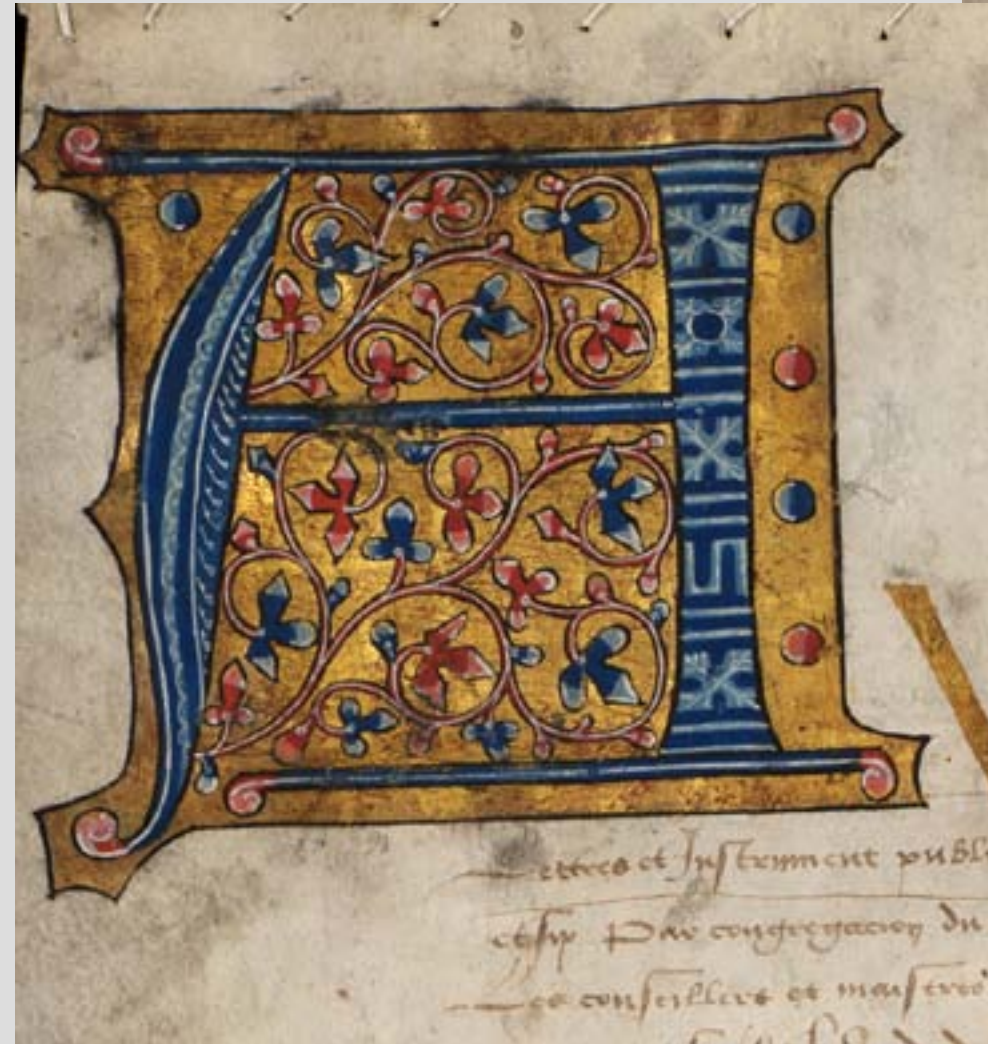 A
Lettres et Instrument publ
et sip Par congregacion du
Les conseillers et maistres